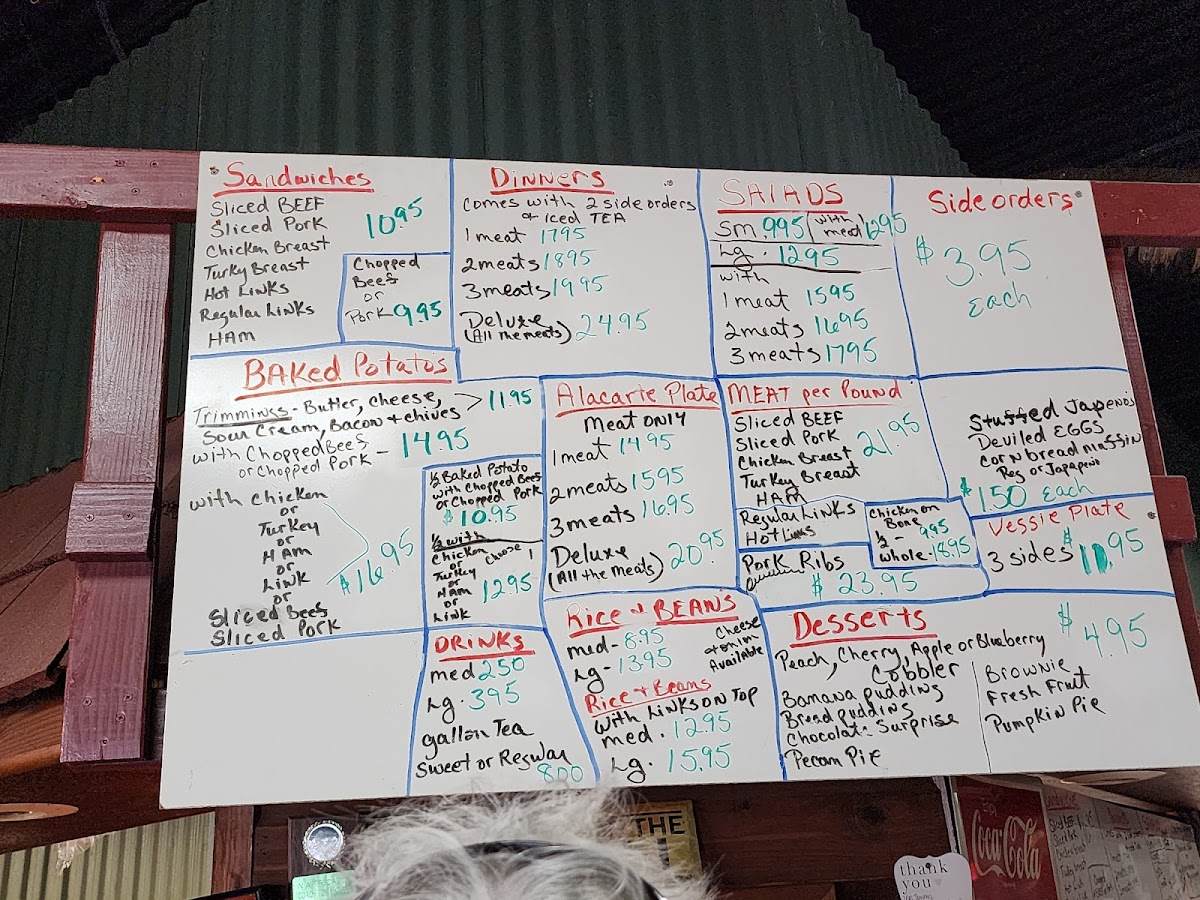 Sandwiches
Sliced BEEF
Sliced Pork
Chicken Breast
Turky Breast
Hot Links
Regular Links
HAM
10.95
Chopped
Beef
or
Pork 9.95
Dinners
Comes with 2 side orders
& iced TEA
1 meat 1795
2 meats 1895
3 meats 1995
Deluxe
(All the meats) 24.95
SALADS
Sm 9.95 with meat 1295
Lg. 1295
with
1 meat 1595
2 meats 1695
3 meats 1795
Side orders
$3.95
Each
BAKed Potatos
Trimmings - Butter, Cheese,
Sour Cream, Bacon & chives
11.95
with Chopped Beef
or Chopped Pork - 14.95
with Chicken
or
Turkey
or
HAM
or
Link
or
Sliced Beef
Sliced Pork
$16.95
1/2 Baked Potato
with Chopped Beef
or Chopped Pork
$10.95
1/2 with
Chicken Choose 1
or
Turkey
or
HAM
or
Link
12.95
Alacarte Plate
Meat only
1 meat 14.95
2 meats 1595
3 meats 16.95
Deluxe
(All the meats) 20.95
MEAT per Pound
Sliced BEEF
Sliced Pork
Chicken Breast
Turkey Breast
HAM
21.95
Regular Links
Hot Links
Chicken on
Bone
1/2 - 995
whole - 1895
Pork Ribs
$23.95
Stuffed Japenos
Deviled EGGS
Cornbread muffin
Reg or Japapeno
$1.50 each
Veggie Plate
3 sides $ 11.95
DRINKS
med 250
Lg. 395
gallon Tea
Sweet or Regular
8.00
Rice & BEANS
med - 8.95
Lg - 13.95
Cheese
& onion
Available
Rice & Beans
with Links on Top
med. 12.95
Lg. 15.95
Desserts
$4.95
Peach, Cherry, Apple or Blueberry
Cobbler
Banana pudding
Bread pudding
Chocolate Surprise
Pecan Pie
Brownie
Fresh Fruit
Pumpkin Pie
THE
Coca-Cola
thank
you